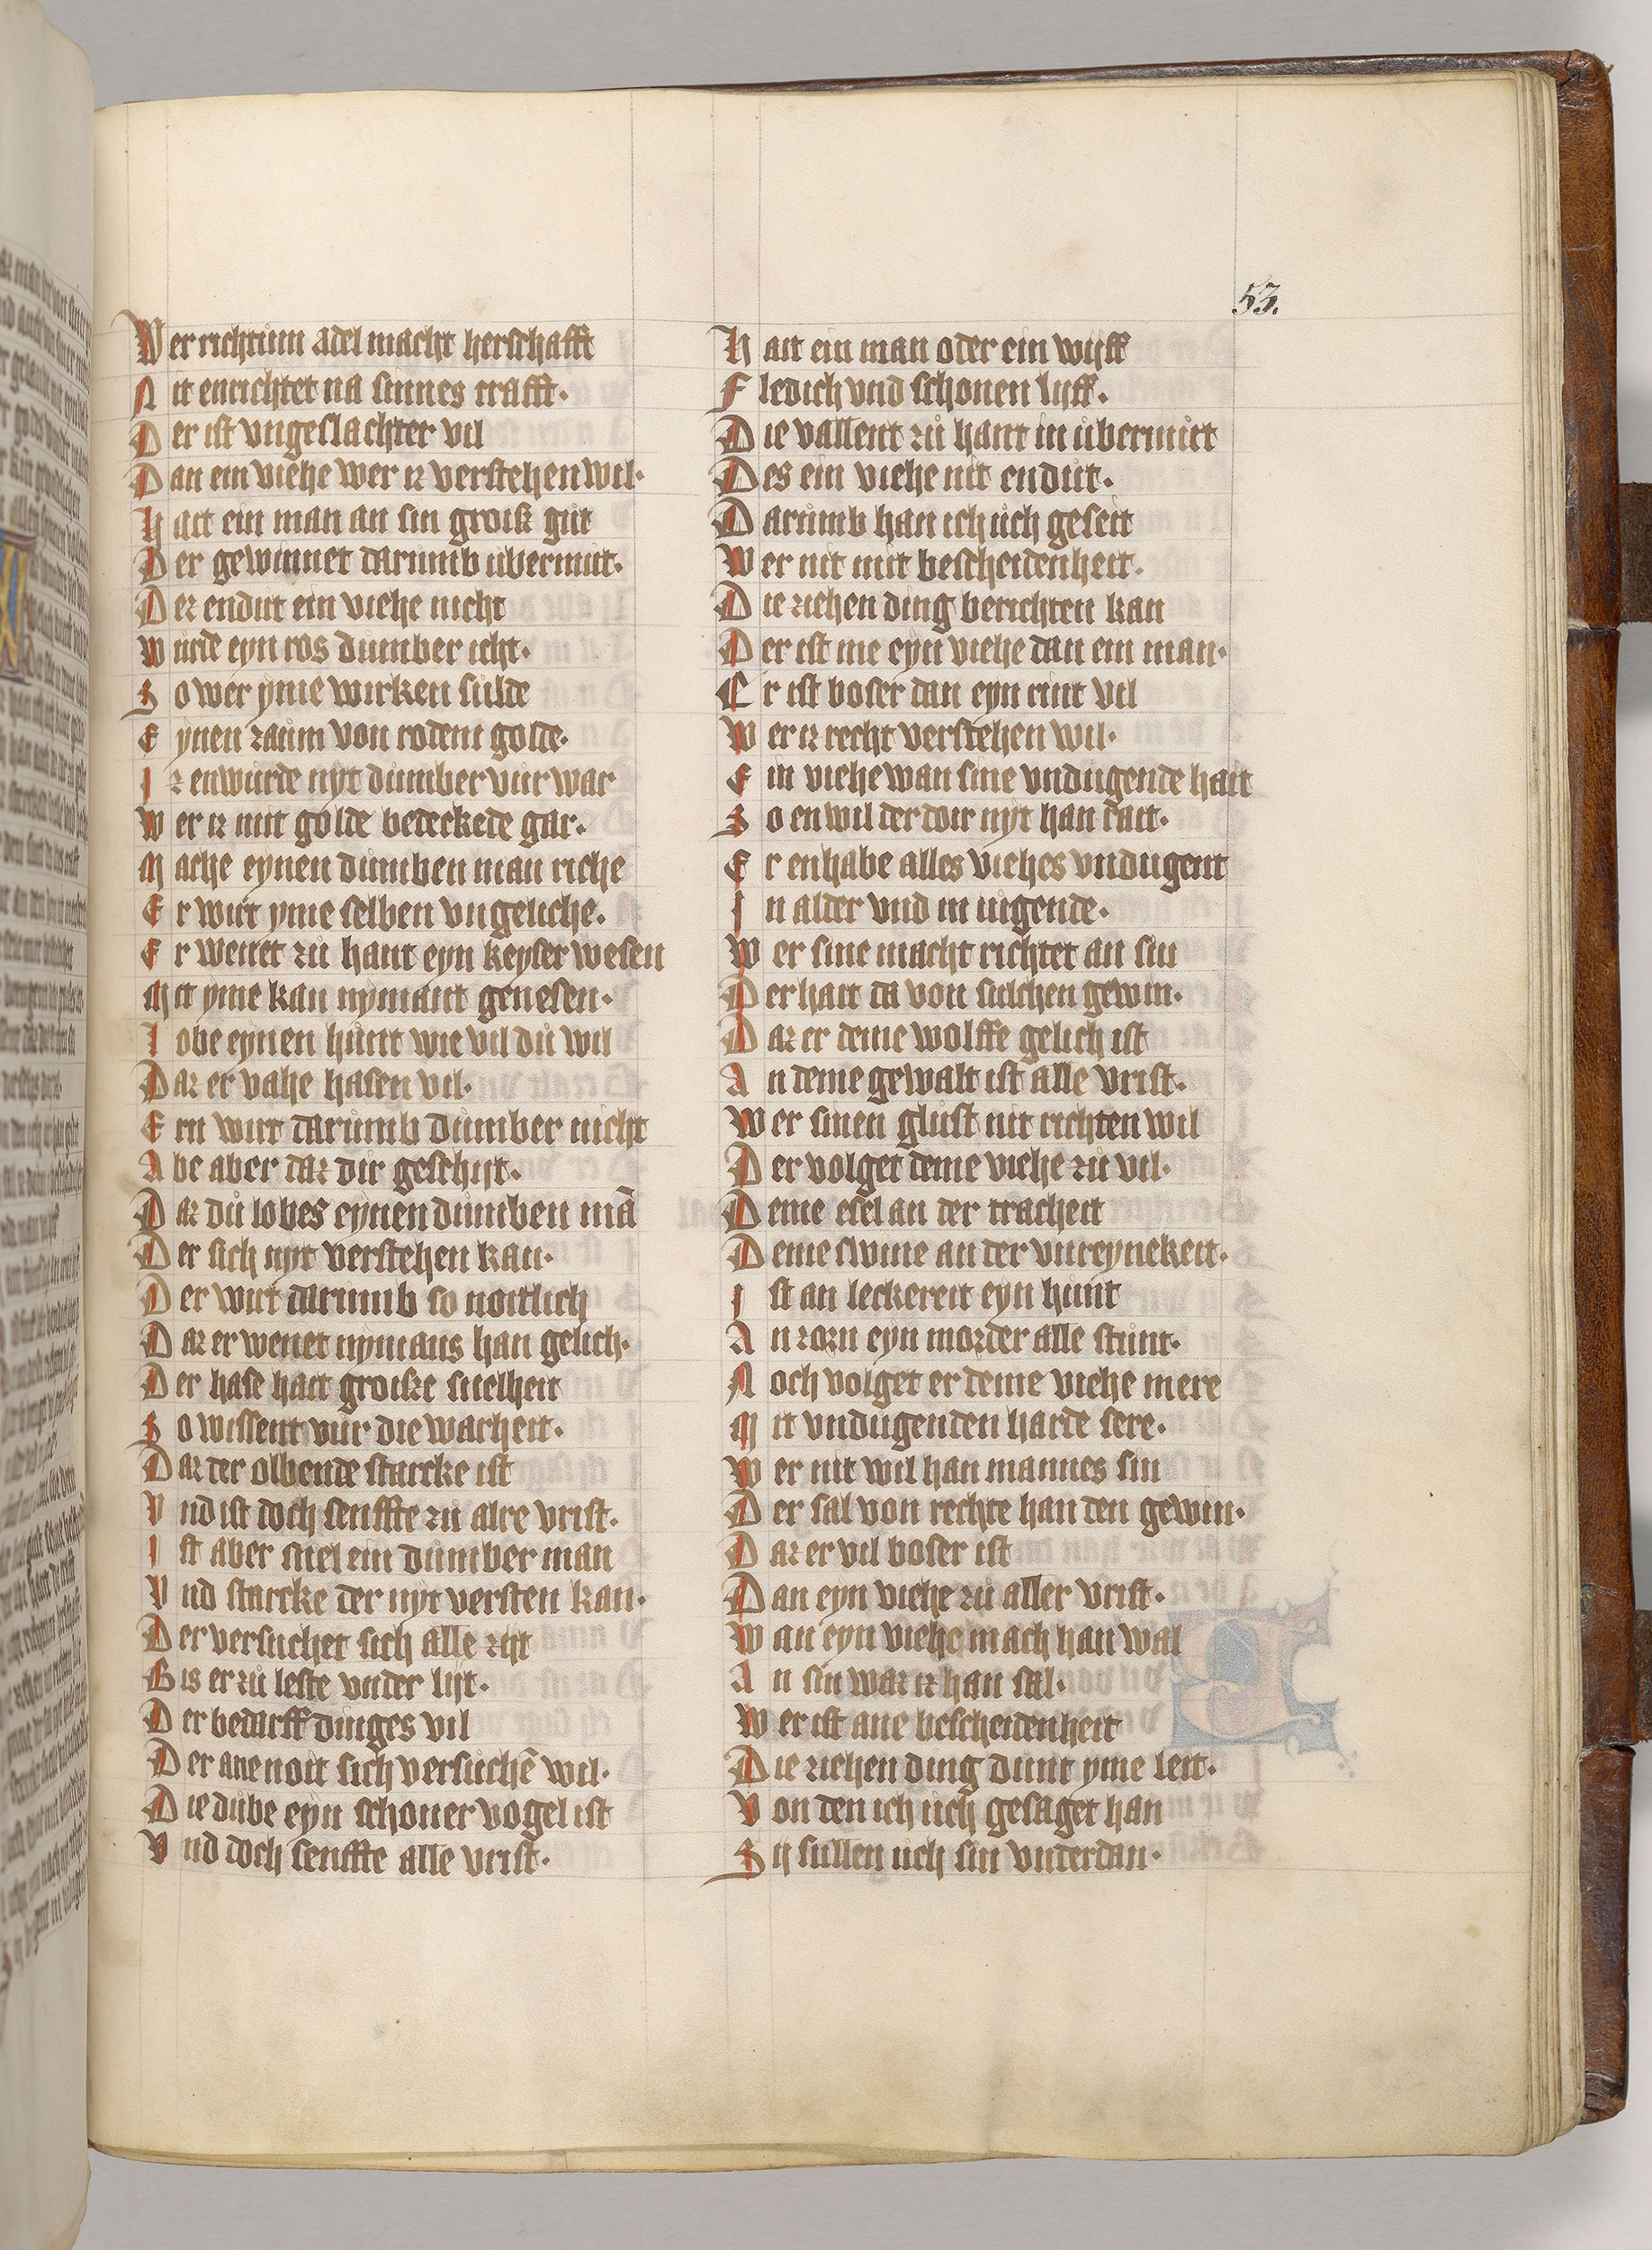 53.
Wer richtum adel macht herschafft
Nit enrichtet na sinnes crafft·
Der ist vngeslachter vil
Dan ein viehe wer iz verstehen wil·
Hait ein man an sin groiß gut
Der gewinnet darumb ubermut·
Dez endut ein viehe nicht
Wurde eyn ros dumber icht·
So wer yme wirken sulde
Eynen zaum von rodem golde·
Iz enwurde nyt dumber vur war
Wer iz mit golde bedeckede gar·
Mache eynen dumben man riche
Er wirt yme selben vngeliche·
Er wenet zu hant eyn keyser wesen
Mit yme kan nymant genesen·
Lobe eynen hunt wie vil du wil
Daz er vahe hasen vil·
Ern wirt darumb dumber nicht
Abe aber daz dir geschijt·
Daz du lobes eynen dumben mā
Der sich nyt verstehen kan·
Der wirt darumb so noitlich
Daz er wenet nymans han gelich·
Der hase hait groisze snelheit
So wissent vur die warheit·
Daz der olbende starcke ist
Vnd ist doch senffte zu alre vrist·
Ist aber snel ein dumber man
Vnd starcke der nyt versten kan·
Der versuchet sich alle zijt
Bis er zu leste vnder lijt·
Der bedarff dinges vil
Der ane noit sich versuchē wil·
Die dube eyn schoner vogel ist
Vnd doch senffte alle vrist·
Hait ein man oder ein wijff
Fledich vnd schonen lijff·
Die vallent zu hant in ubermut
Des ein viehe nit endut·
Darumb han ich uch geseit
Wer nit mit bescheidenheit·
Die ziehen ding berichten kan
Der ist me eyn viehe dan ein man·
Er ist boser dan eyn rint vil
Wer iz recht verstehen wil·
Ein viehe wan sine vndugende hait
So en wil der doir nyt han rait·
Er enhabe alles viehes vndugent
In alder vnd in iugende·
Wer sine macht richtet an sin
Der hait da von sulchen gewin·
Daz er deme wolffe gelich ist
An deme gewalt ist alle vrist·
Wer sinen glust nit richten wil
Der volget deme viehe zu vil·
Deme esel an der tracheit
Deme swine an der vnreynekeit·
Ist an leckereit eyn hunt
An zorn eyn morder alle stunt·
Noch volget er deme viehe mere
Mit vndugenden harde sere·
Wer nit wil han mannes sin
Der sal von rechte han den gewin·
Daz er vil boser ist
Dan eyn viehe zu aller vrist·
Wan eyn viehe mach han wal
An sin waz iz han sal·
Wer ist ane bescheidenheit
Die ziehen ding dunt yme leit·
Von den ich uch gesaget han
Sij sullen uch sin vnderdan·